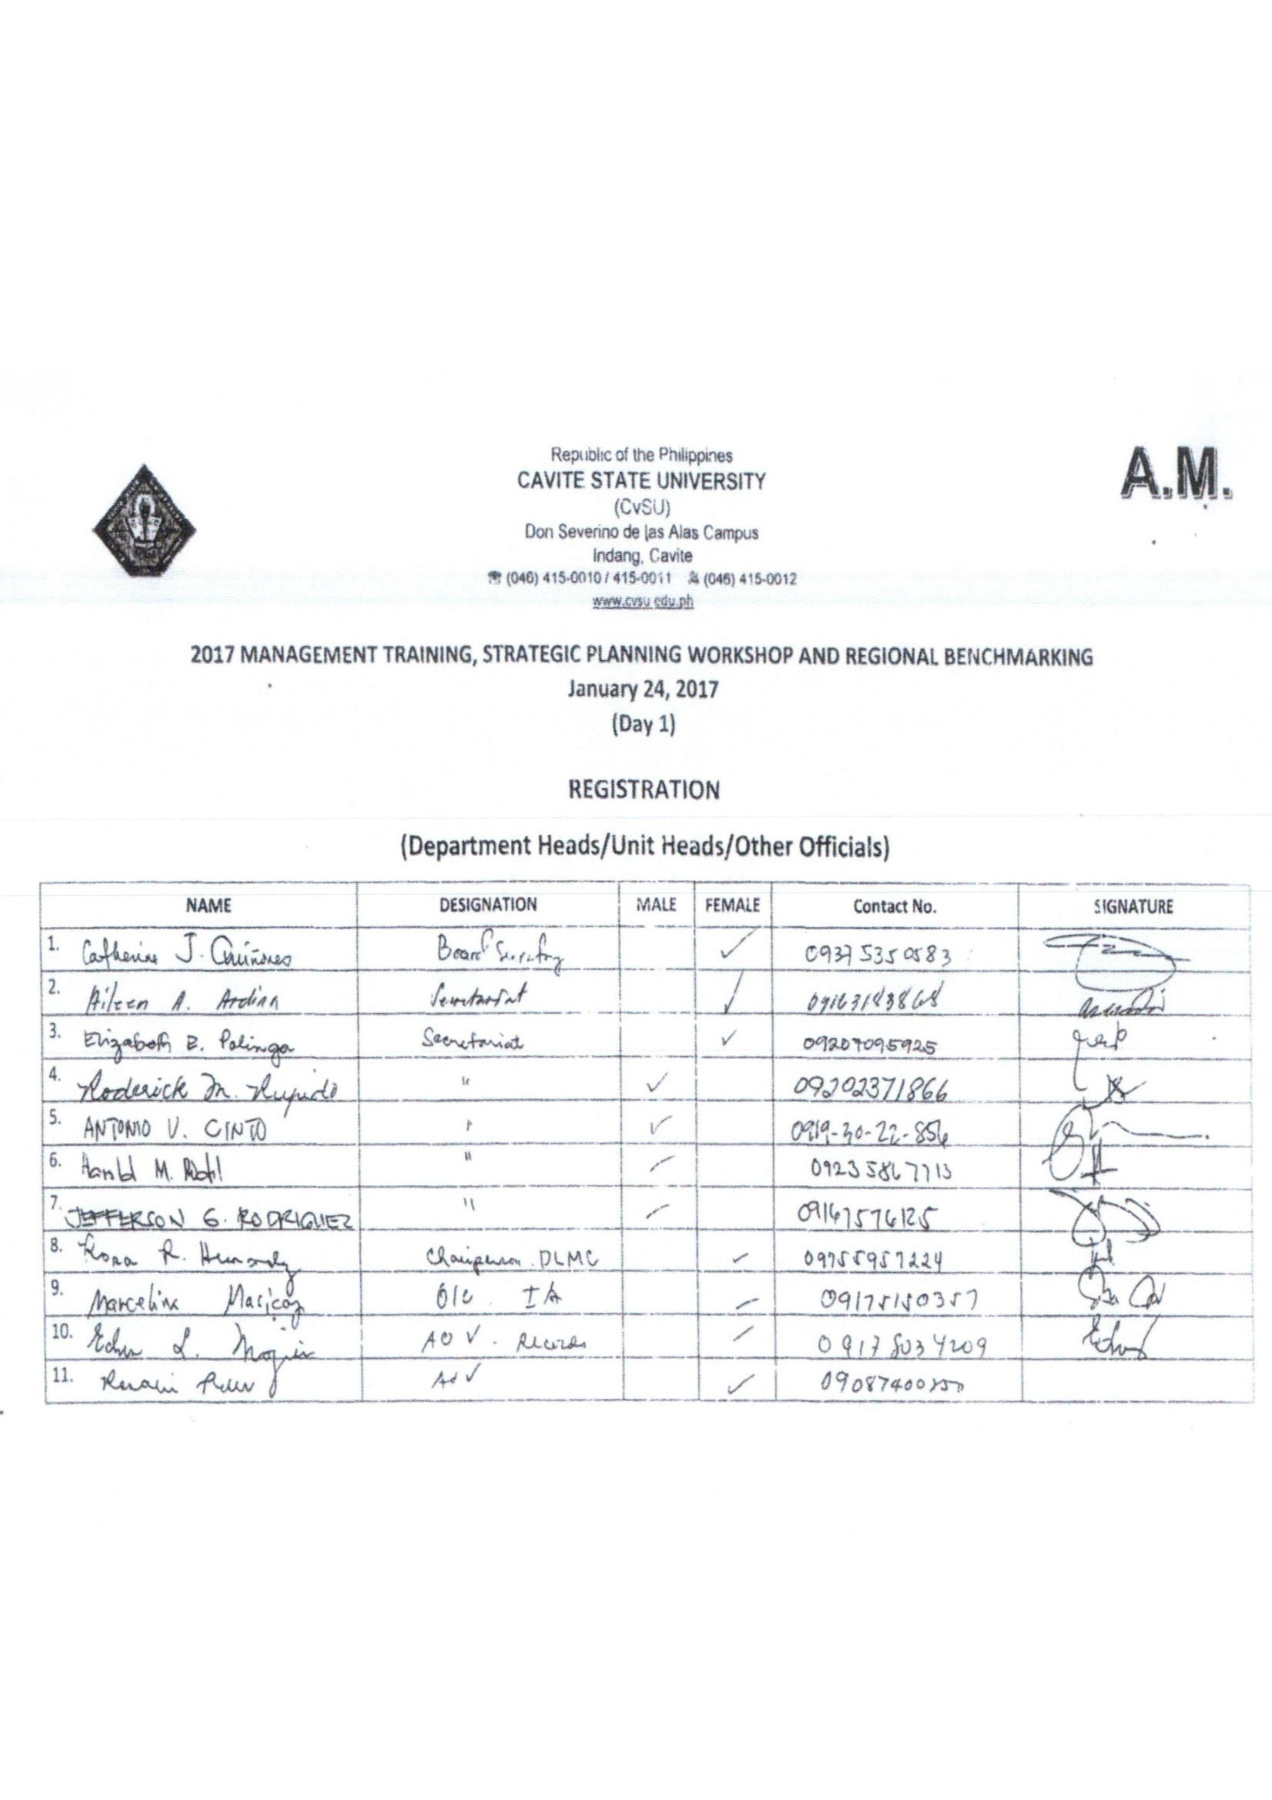 Republic of the Philippines
CAVITE STATE UNIVERSITY
(CvSU)
Don Severino de las Alas Campus
Indang, Cavite
☎ (046) 415-0010 / 415-0011 (046) 415-0012
www.cvsu.edu.ph
A.M.
2017 MANAGEMENT TRAINING, STRATEGIC PLANNING WORKSHOP AND REGIONAL BENCHMARKING
January 24, 2017
(Day 1)
REGISTRATION
(Department Heads/Unit Heads/Other Officials)
NAME DESIGNATION MALE FEMALE Contact No. SIGNATURE
1. Catherine J. Quiñones Board Secretary ✓ 09375350583
2. Aileen A. Ardina Secretariat ✓ 09163143868
3. Elizabeth E. Polinga Secretariat ✓ 09209095925
4. Roderick M. Rupido " ✓ 09202371866
5. ANTONIO V. CINTO " ✓ 0919-30-22-856
6. M. " ✓ 09235867713
7. JEFFERSON G. RODRIGUEZ " ✓ 09167576125
8. Rosa R. Chairperson DLMC ✓ 09755957224
9. Marcelina OIC IA ✓ 09175150357
10. L. AO V - Records ✓ 09178034209
11. AO V ✓